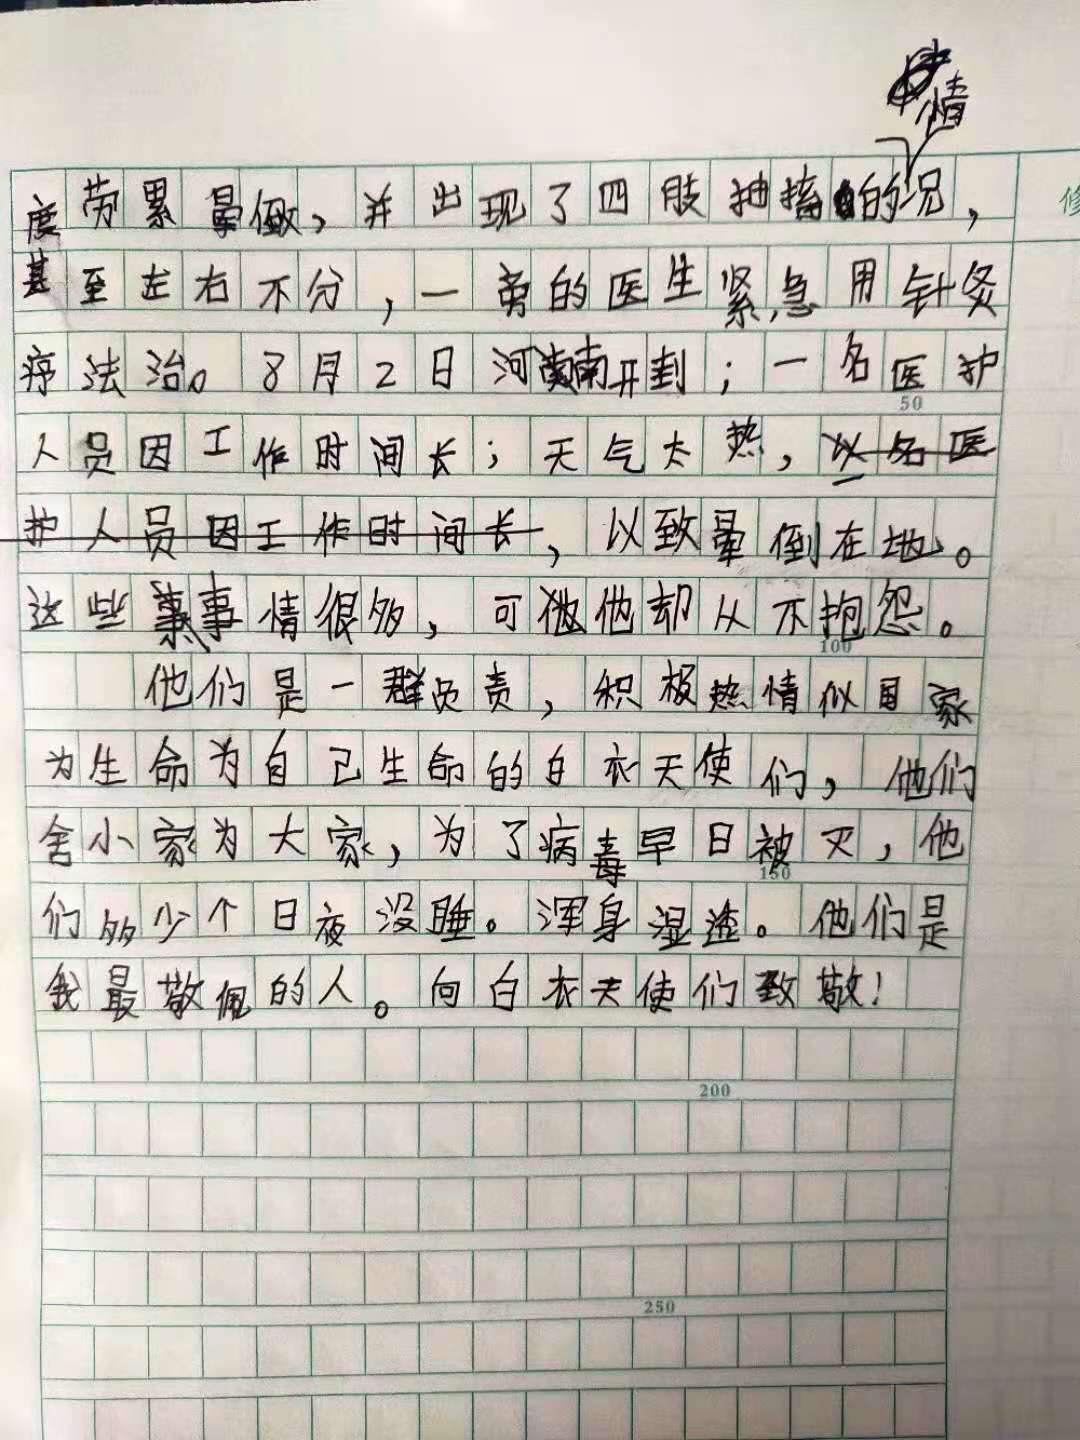 情
度劳累晕倒,并出现了四肢抽搐的况,
甚至左右不分,一旁的医生紧急用针灸
疗法治。8月2日河南开封;一名医护
50
人员因工作时间长;天气太热,以名医
护人员因工作时间长,以致晕倒在地。
这些事情很多,可他却从不抱怨。
100
他们是一群负责,积极热情似国家
为生命为自己生命的白衣天使们,他们
舍小家为大家,为了病毒早日被灭,他
150
们多少个日夜没睡。浑身湿透。他们是
我最敬佩的人。向白衣天使们致敬!
200
250
修